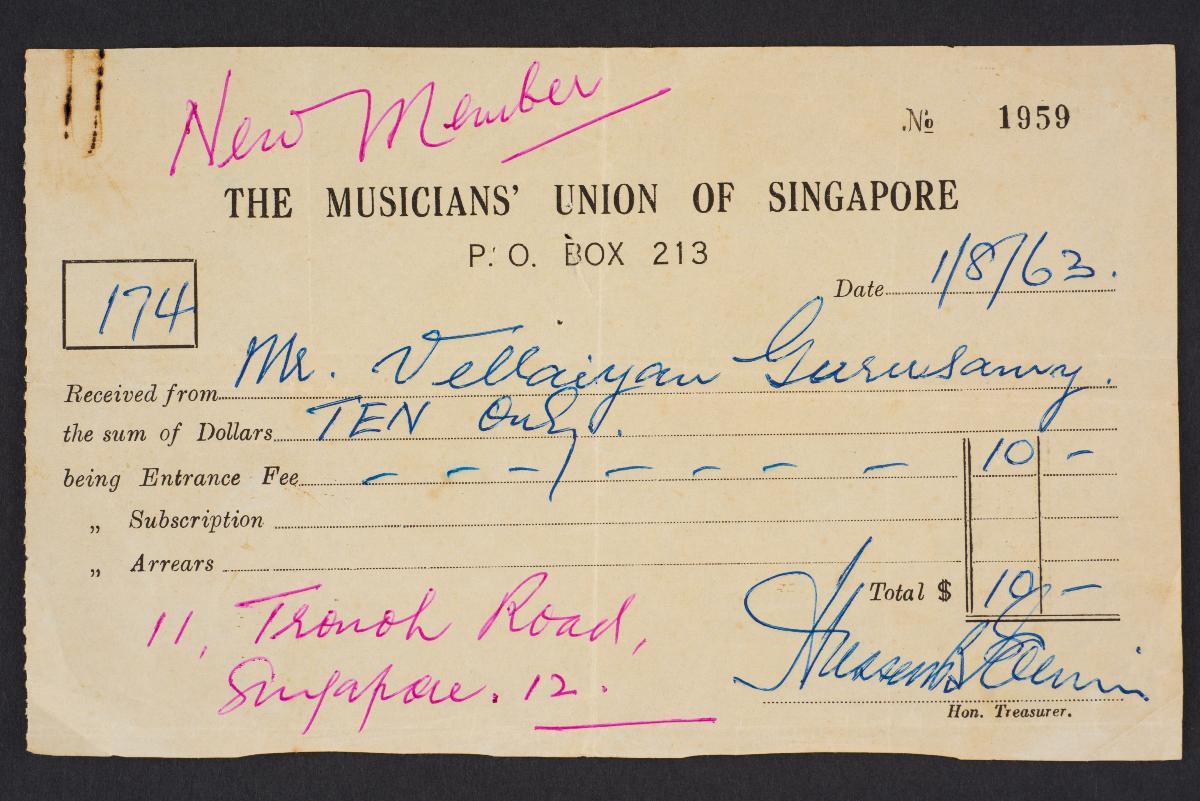 New Member
№ 1959
THE MUSICIANS' UNION OF SINGAPORE
P. O. BOX 213
174
Date 1/8/63.
Received from Mr. Vellaiyan Gurusamy.
the sum of Dollars TEN Only.
being Entrance Fee — — — — — — — 10 -
„ Subscription
„ Arrears
Total $ 10 -
11, Tronoh Road,
Singapore. 12.
Hon. Treasurer.